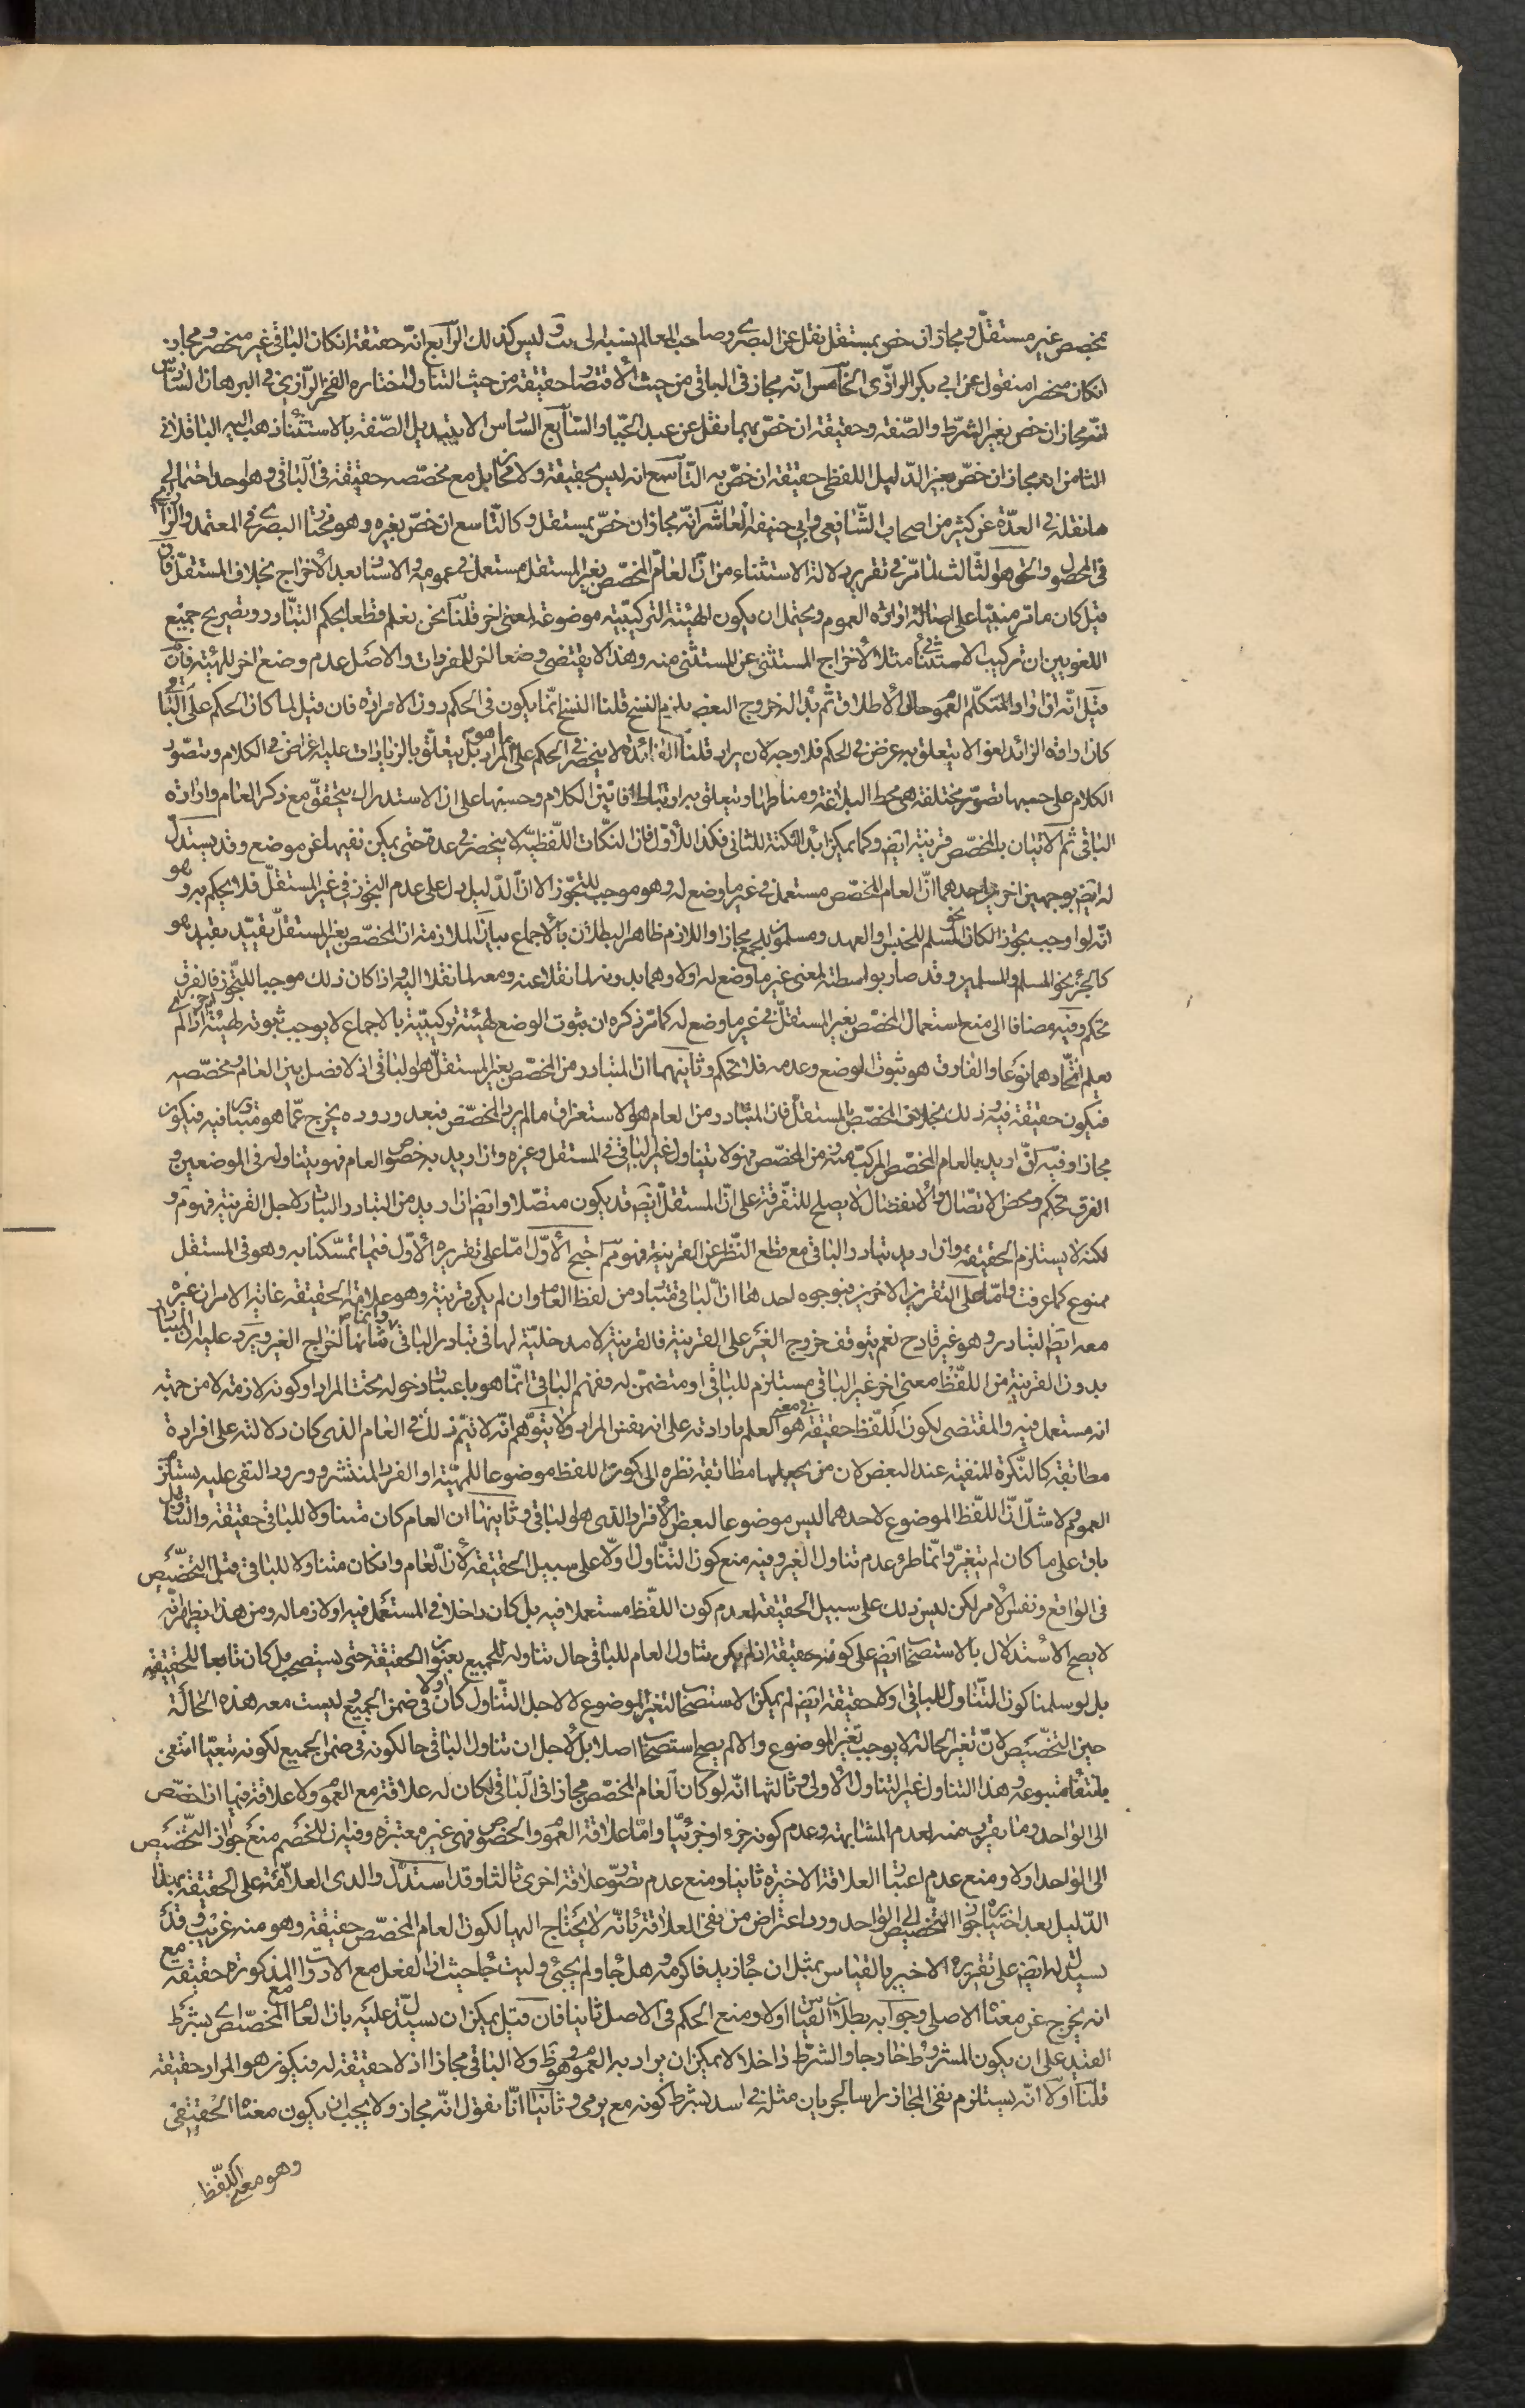 بمخصص غير مستقل ومجاز ان خص بمستقل نقل عن البصري وصاحب المعالم نسبه الى ليس كذلك الرابع انه حقيقة انكان الباقي غير منحصر ومجاز
انكان منحصرا منقول عن ابي بكر الرازي الخامس انه مجاز في الباقي من حيث الاقتصار حقيقة من حيث التناول اختاره الفخر الرازي في البرهان السادس
انه مجاز ان خص بغير الشرط والصفة وحقيقة ان خص بهما نقل عن عبد الجبار السابع السادس الا بتبديل الصفة بالاستثناء ذهب اليه الباقلاني
الثامن انه مجاز ان خص بغير الدليل اللفظي حقيقة ان خص به التاسع انه ليس بحقيقة ولا مجاز بل مع مخصصه حقيقة في الباقي وهو احد احتمالي
ما نقله في العدة عن كثير من اصحاب الشافعي وابي حنيفة العاشر انه مجاز ان خص بمستقل وكالتاسع ان خص بغيره وهو مختار البصري في المعتمد والرازي
في المحصول والحق هو الثالث لما مر في تقرير دلالة الاستثناء من ان العام المخصص بغير المستقل مستعمل في عمومه والاسناد بعد الاخراج بخلاف المستقل فان
قيل كان ما مر مبنيا على اصالة ارادة العموم ويحتمل ان يكون الهيئة التركيبية موضوعة لمعنى اخر قلنا نحن نعلم قطعا بحكم التبادر وتصريح جميع
اللغويين ان تركيب الاستثناء مثلا لاخراج المستثنى عن المستثنى منه وهذا لا يقتضي وضعا اخر للمفردات والاصل عدم وضع اخر للهيئة فان
قيل انه اذا اراد المتكلم العموم حال الاطلاق ثم بدا له خروج البعض يلزم النسخ قلنا النسخ انما يكون في الحكم دون الارادة فان قيل لما كان الحكم على الباقي
كان ارادة الزائد لغوا لا يتعلق به غرض في الحكم فلا وجه لان يراد قلنا الفائدة لا ينحصر في الحكم على ما هو المراد بل يتعلق بالزيادات عليه اغراض في الكلام وتصور
الكلام على حسبها بصور مختلفة هي محط البلاغة ومناطها ويتعلق به ارتباط افانين الكلام وحسنها على ان الاستدراك يتحقق مع ذكر العام وارادة
الباقي ثم الاتيان بالمخصص قرينة ايض وكما يمكن ابداء النكتة للثاني فكذا للاول فان النكات اللفظية لا ينحصر في عدة حتى يمكن نفيها عن موضع وقد يستدل
له ايض بوجهين اخرين احدهما ان العام المخصص مستعمل في غير ما وضع له وهو موجب للتجوز الا ان الدليل دل على عدم التجوز في غير المستقل فلا يحكم به وهو
انه لو اوجب تجوزا لكان نحو المسلم للجنس والعهد ومسلمون للجمع مجازا واللازم ظاهر البطلان بالاجماع بيان الملازمة ان المخصص بغير المستقل يقيد بقيد هو
كالجزء نحو المسلم والمسلمين وقد صار بواسطته لمعنى غير ما وضع له اولا وهما بدونه لما نقلا عنه ومعه لما نقلا اليه واذا كان ذلك موجبا للتجوز فالفرق
تحكم وفيه مضافا الى منع استعمال المخصص بغير المستقل في غير ما وضع له كما مر ذكره ان ثبوت الوضع لهيئة تركيبية بالاجماع لا يوجب ثبوته لهيئة اخرى اذا لم
يعلم اتحادهما نوعا والفارق هو ثبوت الوضع وعدمه فلا تحكم وثانيهما ان المتبادر من المخصص بغير المستقل هو الباقي اذ لا فصل بين العام ومخصصه
فيكون حقيقة فيه وذلك بخلاف المخصص بالمستقل فان المتبادر من العام هو الاستغراق ما لم يرد المخصص فبعد وروده يخرج عما هو متبادر فيه فيكون
مجازا وفيه ان اريد بالعام المخصص المركب منه ومن المخصص فهو لا يتناول غير الباقي في المستقل وغيره وان اريد به خصوص العام فهو يتناوله في الموضعين و
الفرق تحكم ومحض الاتصال والانفصال لا يصلح للتفرقة على ان المستقل ايض قد يكون متصلا وايض ان اريد من التبادر التبادر لاجل القرينة فهو مم و
لكنه لا يستلزم الحقيقة وان اريد تبادر الباقي مع قطع النظر عن القرينة فهو مم احتج الاول اما على تقريره الاول فبما تمسكنا به وهو في المستقل
ممنوع كما عرفت واما على التقريرين الاخرين فبوجوه احدها ان الباقي متبادر من لفظ العام وان لم يكن قرينة وهو علامة الحقيقة غاية الامر ان غيره
معه ايض لتبادر وهو غير قادح نعم يتوقف خروج الغير على القرينة فالقرينة لا مدخلية لها في تبادر الباقي وانما شانها اخراج الغير ويرد عليه ان المتبادر
بدون القرينة من اللفظ معنى اخر غير الباقي مستلزم للباقي او متضمن له وفهم الباقي انما هو باعتبار دخوله تحت المراد او كونه لازمة لا من جهة
انه مستعمل فيه والمقتضي لكون اللفظ حقيقة في معنى هو العلم بارادته على انه نفس المراد ولا يتوهم انه لا يتم ذلك في العام الذي كان دلالته على افراده
مطابقة كالنكرة المنفية عند البعض لان من يجعلها مطابقة نظره الى كون اللفظ موضوعا للمهية او الفرد المنتشر وورود النفي عليه يستلزم
العموم ولا شك ان اللفظ الموضوع لاحدهما ليس موضوعا لبعض الافراد الذي هو الباقي وثانيها ان العام كان متناولا للباقي حقيقة والتناول
باق على ما كان لم يتغير وانما طرء عدم تناول الغير وفيه منع كون التناول اولا على سبيل الحقيقة لان العام وانكان متناولا للباقي قبل التخصيص
في الواقع ونفس الامر لكن ليس ذلك على سبيل الحقيقة لعدم كون اللفظ مستعملا فيه بل كان داخلا في المستعمل فيه او لازما له ومن هذا يظهر انه
لا يصح الاستدلال بالاستصحاب ايض على كونه حقيقة اذ لم يكن تناول العام للباقي حال تناوله للجميع بعنوان الحقيقة حتى يستصحب بل كان تابعا للحقيقة
بل لو سلمنا كون التناول للباقي اولا حقيقة ايض لم يمكن الاستصحاب لتغير الموضوع لا لاجل التناول كان اولا في ضمن الجميع وليست معه هذه الحالة
حين التخصيص لان تغير الحالة لا يوجب تغير الموضوع والا لم يصح استصحاب اصلا بل لاجل ان تناول الباقي حال كونه في ضمن الجميع لكونه تبعيا انتفى
بانتفاء متبوعه وهذا التناول غير التناول الاولي وثالثها انه لو كان العام المخصص مجازا في الباقي لكان له علاقة مع العموم ولا علاقة فيما اذا خصص
الى الواحد وما يقرب منه لعدم المشابهة وعدم كونه جزءا وجزئيا واما علاقة العموم والخصوص فهي غير معتبرة وفيه ان للخصم منع جواز التخصيص
الى الواحد اولا ومنع عدم اعتبار العلاقة الاخيرة ثانيا ومنع عدم تصور علاقة اخرى ثالثا وقد استدل والدي العلامة على الحقيقة بهذا
الدليل بعد اختياره جواز التخصيص الى الواحد ورد اعتراض من نفى العلاقة بانه لا يحتاج اليها لكون العام المخصص حقيقة وهو منه غريب وقد
يستدل له ايض على تقريره الاخير بالقياس بمثل ان جاء زيد فاكرمه وهل جاء ولم يجئ وليت جاء حيث ان الفعل مع الادوات المذكورة حقيقة مع
انه يخرج عن معناه الاصلي وجوابه بطلان القياس اولا ومنع الحكم في الاصل ثانيا فان قيل يمكن ان يستدل عليه بان العام مع المخصص اي بشرط
القيد على ان يكون المشروط خارجا والشرط داخلا لا يمكن ان يراد به العموم وهو ظ ولا الباقي مجازا اذ لا حقيقة له فيكون هو المراد حقيقة
قلنا اولا انه يستلزم نفي المجاز راسا لجريان مثله في اسد بشرط كونه مع يرمي وثانيا انا نقول انه مجاز ولا يجب ان يكون معناه الحقيقي
وهو معنى اللفظ